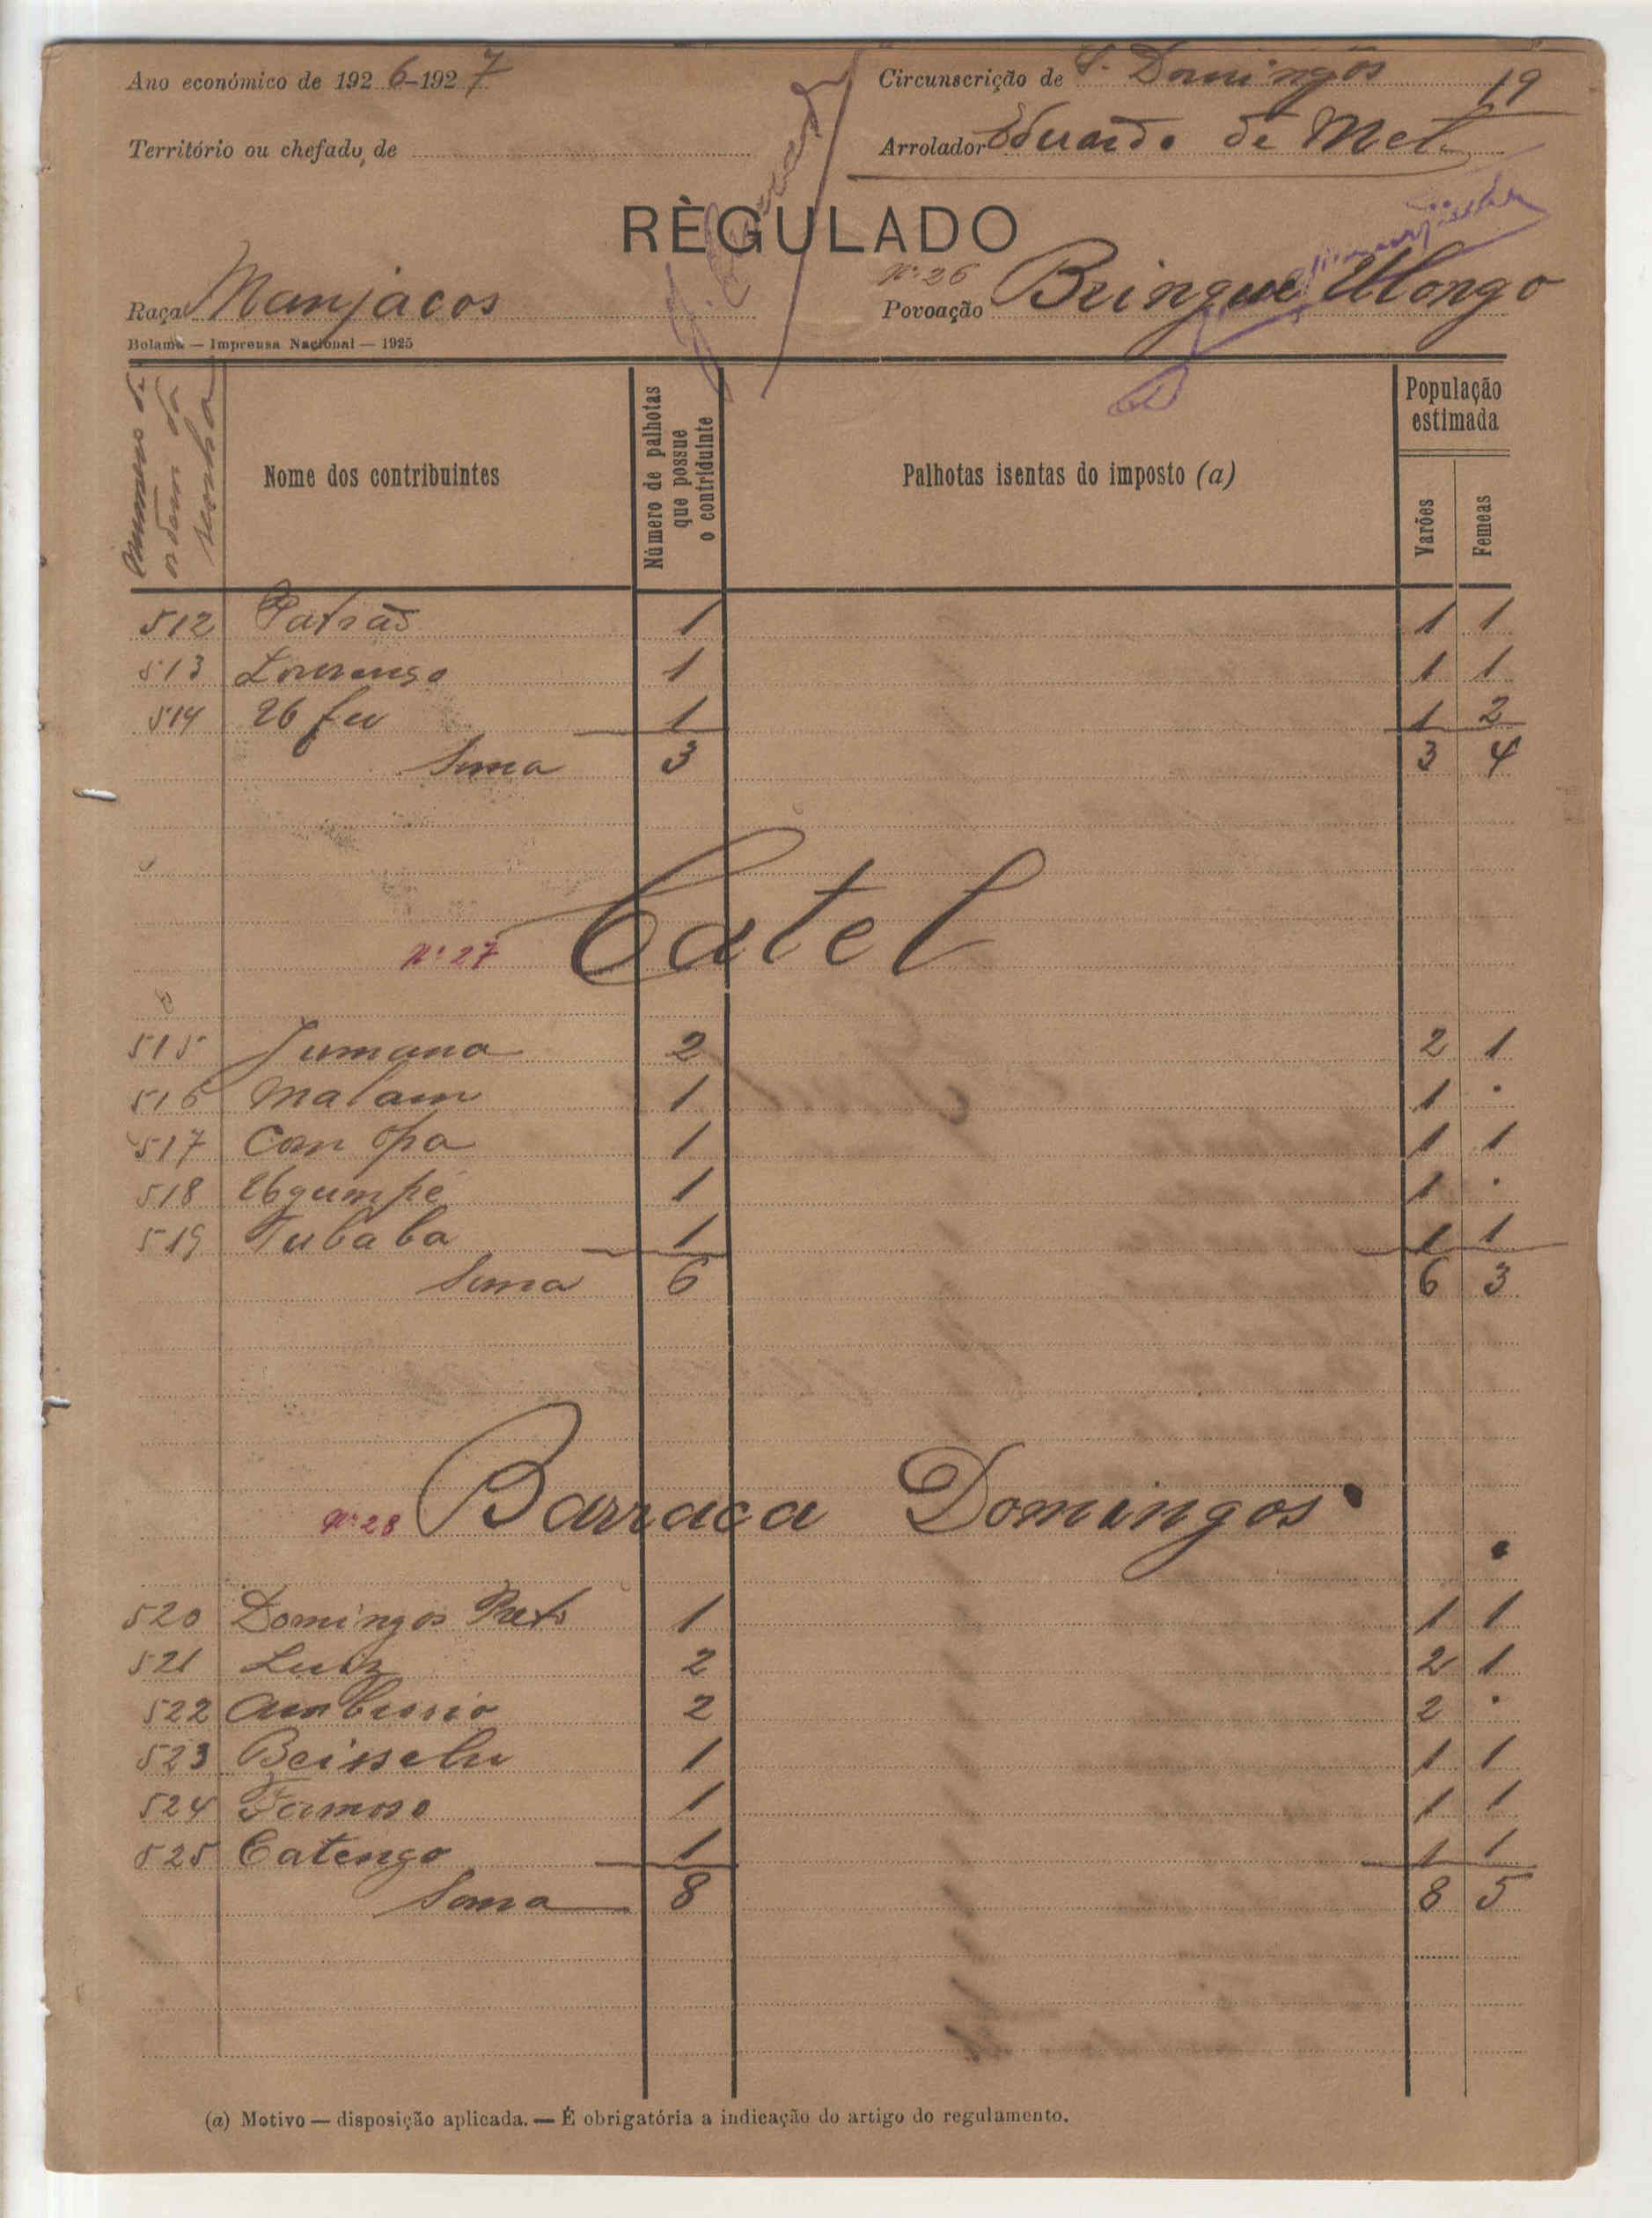 Ano económico de 1926-1927
Circunscrição de S. Domingos
19
Território ou chefado, de
Arrolador Eduardo de Mel
RÈGULADO
Raça Manjacos
Nº 26
Povoação Bringue Ulongo
Bolama — Imprensa Nacional — 1925
Nome dos contribuintes
Número de palhotas que possue o contriduinte
Palhotas isentas do imposto (a)
População estimada
Varões
Femeas
512 Patrão 1 1 1
513 Lourenso 1 1 1
514 1 1 2
Soma 3 3 4
Nº 27 Catel
515 Jumana 2 2 1
516 Malam 1 1 .
517 Can opa 1 1 1
518 Ubgumpé 1 1 .
519 Tubaba 1 1 1
Soma 6 6 3
Nº 28 Barraca Domingos
520 Domingos Preto 1 1 1
521 Luiz 2 2 1
522 2 2 .
523 Beisselu 1 1 1
524 Formoso 1 1 1
525 Catengo 1 1 1
Soma 8 8 5
(a) Motivo — disposição aplicada. — É obrigatória a indicação do artigo do regulamento.